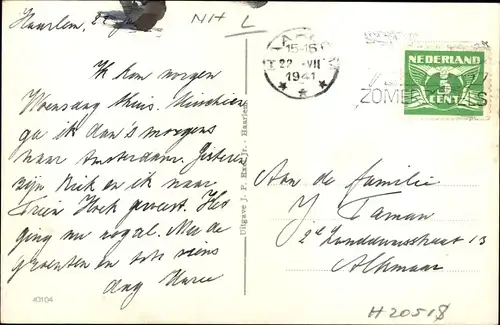 Haarlem, 22 Juli
NH L
HAARLEM
15-16
22 -VII
1941
NEDERLAND
5
CENT
ZOMERZEGELS
Ik kom morgen
Woensdag thuis. Misschien
ga ik dan 's morgens
naar Amsterdam. Gisteren
zijn Riek en ik naar
Trien Hoek geweest. Het
ging nu nogal. Met de
groeten en tot ziens
dag
Uitgave J. F. Jr. - Haarlem
Aan de familie
J Taman
2e Landdwarsstraat 13
Alkmaar
40104
H20518